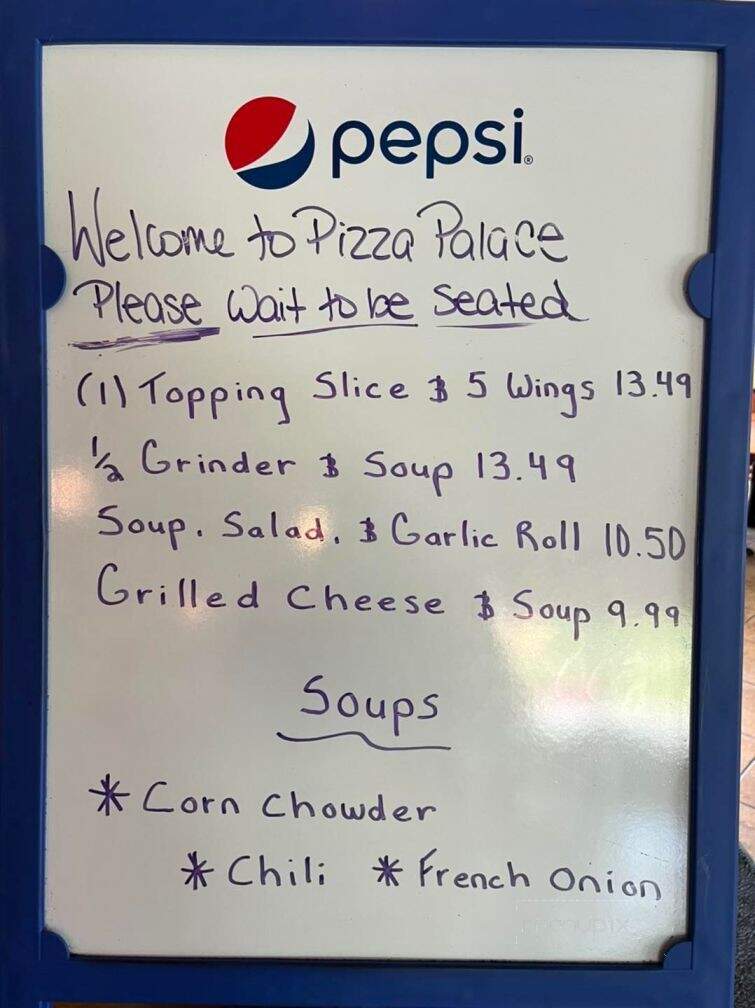 pepsi®
Welcome to Pizza Palace
Please Wait to be Seated
(1) Topping Slice & 5 Wings 13.49
1/2 Grinder & Soup 13.49
Soup, Salad, & Garlic Roll 10.50
Grilled Cheese & Soup 9.99
Soups
* Corn Chowder
* Chili * French Onion